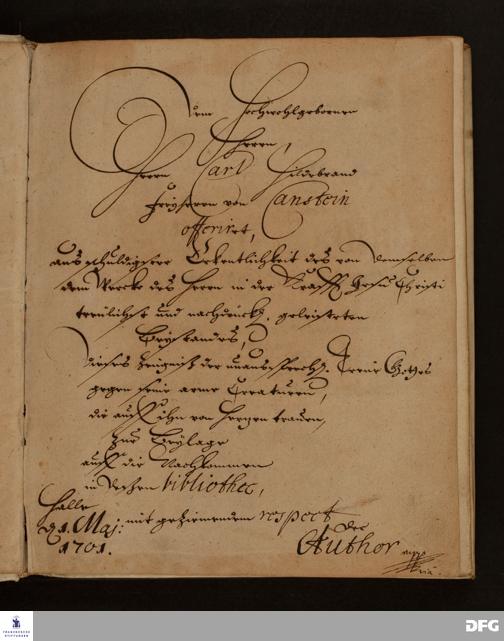 Dem Hochwohlgebornen
Herrn,
Herrn Carl Hildebrand
Freyherrn von Canstein
offeriret,
aus schuldigster Erkentlichkeit des von demselben
dem Wercke des Herrn in der Krafft Jesu Christi
treulichst und nachdrückl. geleisteten
Beystandes,
dieses Zeugniß der unaussprechl. Treue Gottes
gegen seine arme Creaturen,
die auff ihn von Hertzen trauen,
zur Beylage
auff die Nachkommen
in Dessen bibliothec,
Halle
d. 1. Maj. mit geziemendem respect
1701. Der
Author
mppria.
FRANCKESCHE
STIFTUNGEN
DFG